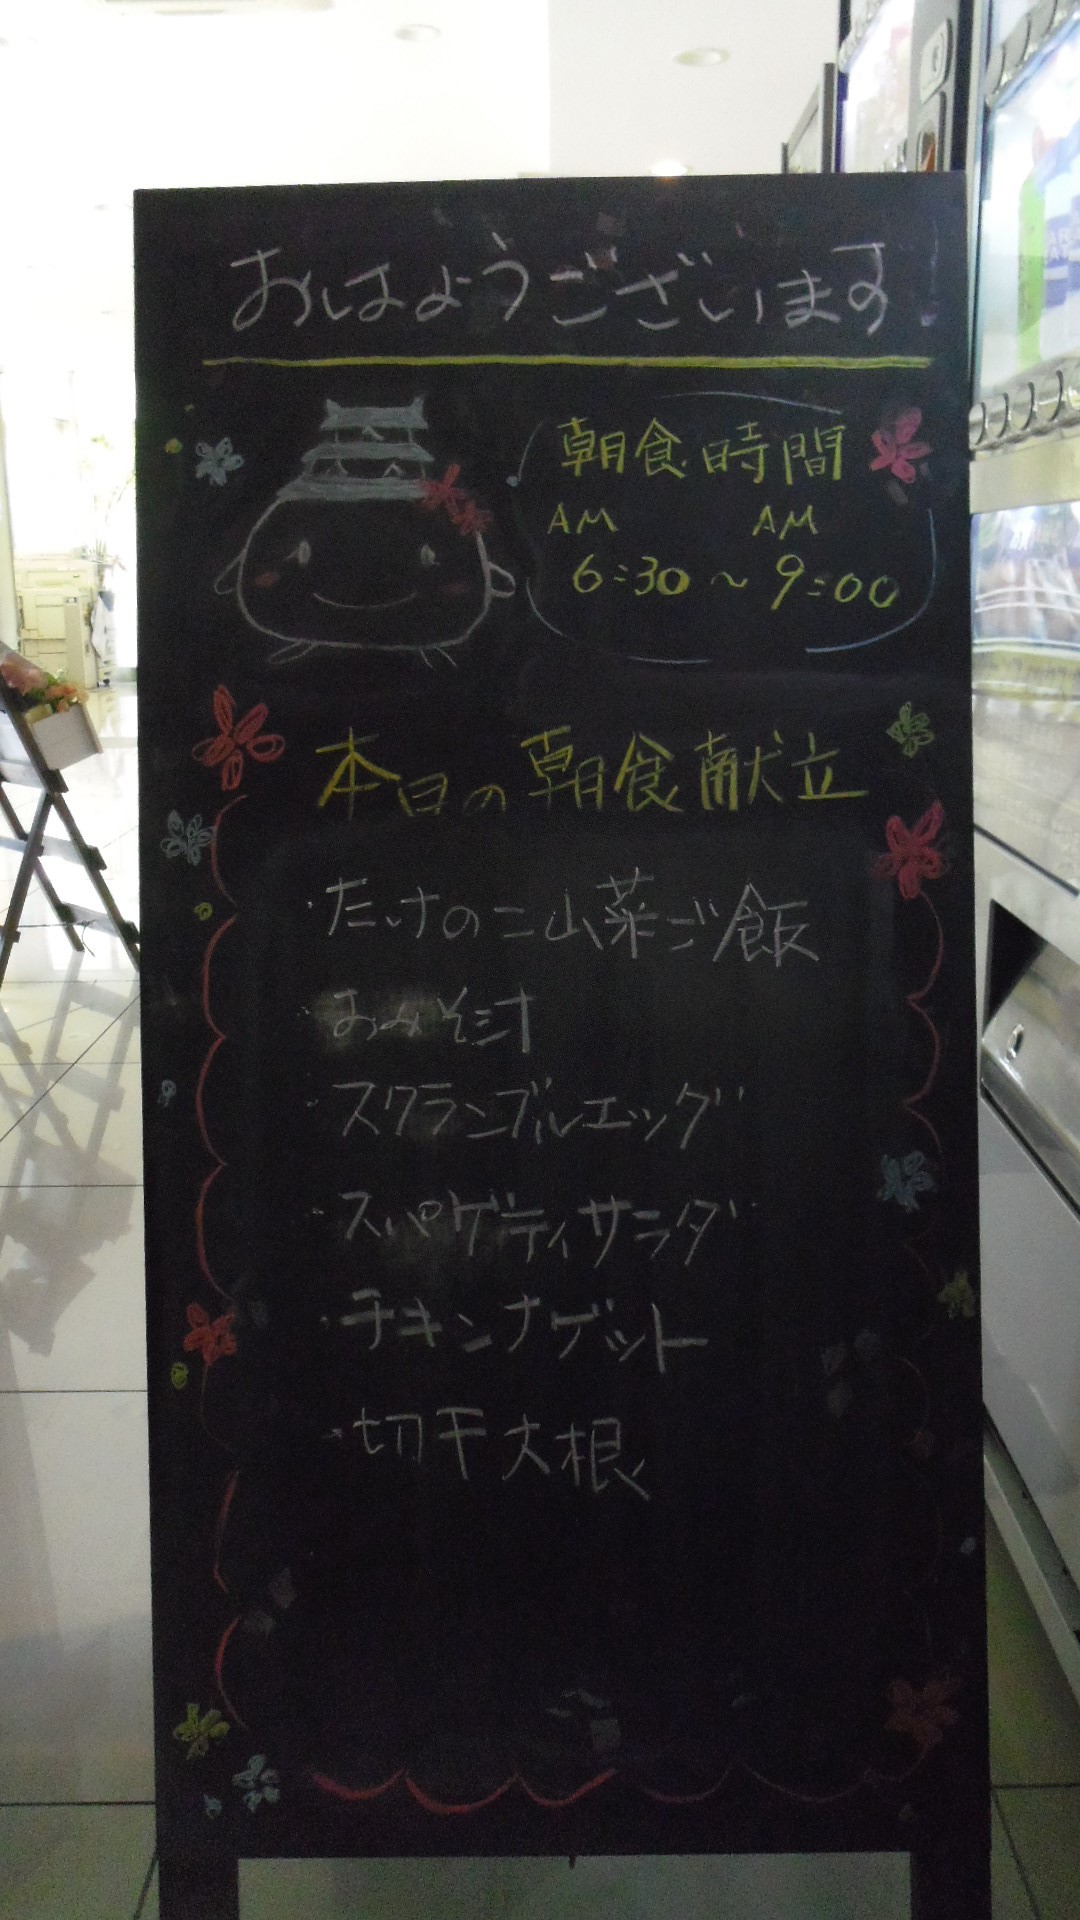 おはようございます!
朝食時間
AM AM
6:30～9:00
本日の朝食献立
・たけのこ山菜ご飯
・おみそ汁
・スクランブルエッグ
・スパゲティサラダ
・チキンナゲット
・切干大根